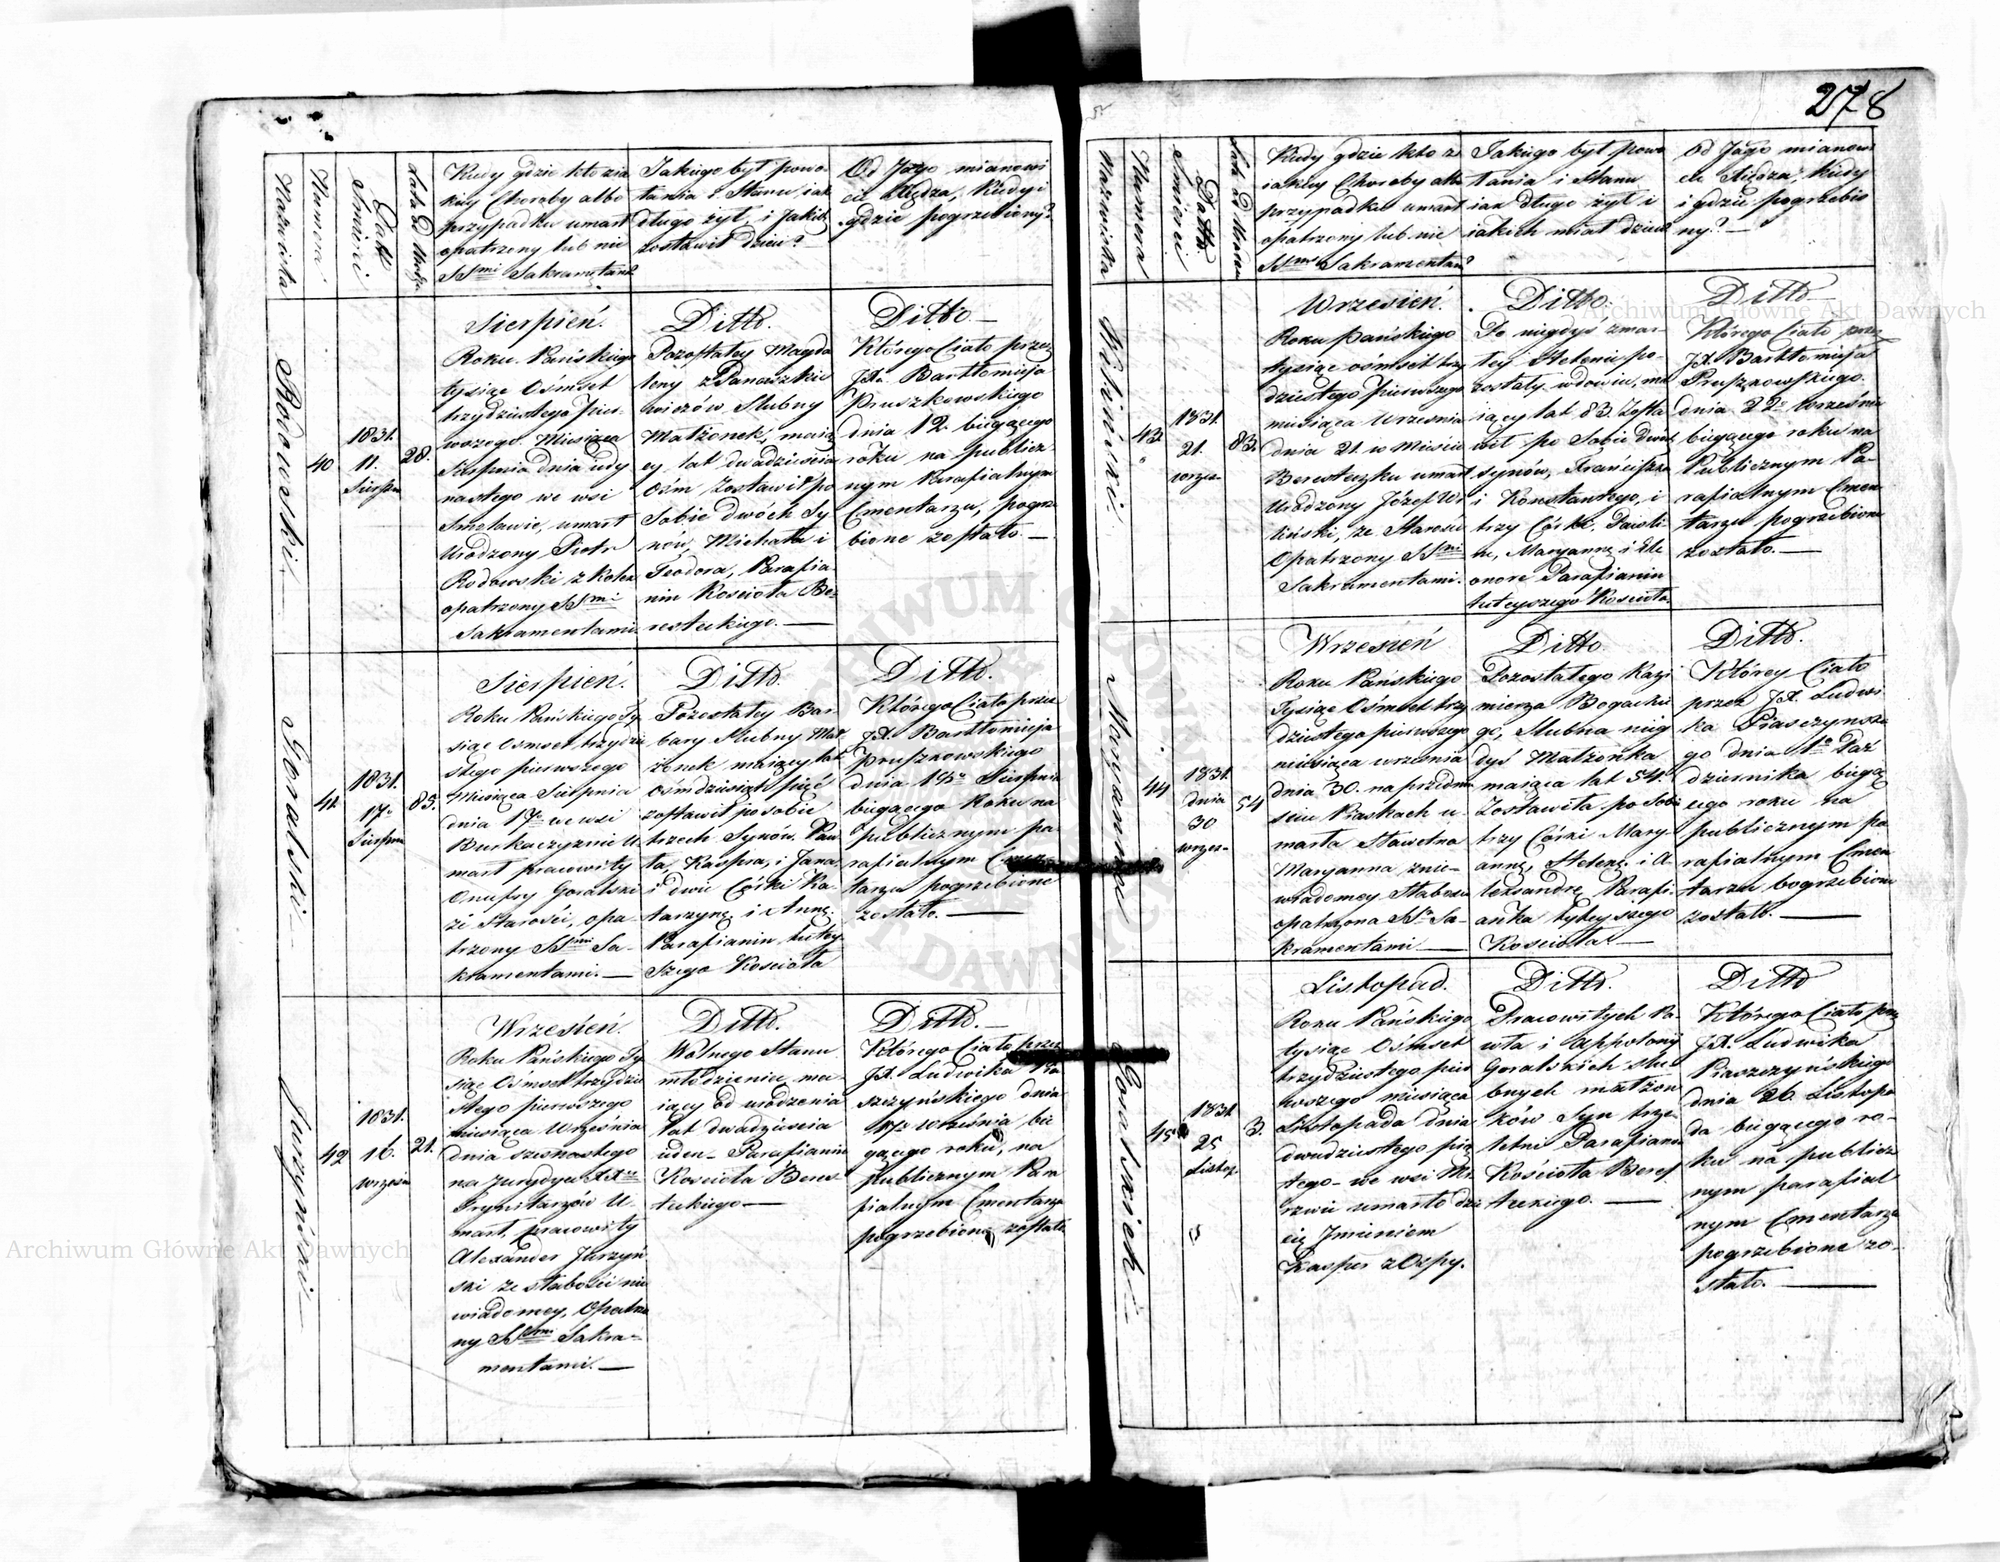 278
Nazwiska
Numera
Data
Śmierci
Lata od Urodze
Kiedy gdzie kto z ia
kiey Choroby albo
przypadku umarł
opatrzony lub nie
SSmi Sakramętami?
Jakiego był powo
łania i Stanu iak
długo żył, i Jakich
zostawił dzieci?
Od Jago mianowi
cie Xiędza, Kiedy i
gdzie pogrzebiony?
Rodowski
40
1831.
11.
Sierpn
28.
Sierpień.
Roku Pańskiego
tysiąc Ośmset
trzydziestego pier
wszego Miesiąca
Sierpnia dnia iedy
nastego we wsi
Smolawie, umarł
Urodzony Piotr
Rodowski z Koler
opatrzony SSmi
Sakramentami.
Ditto.
Pozostałey Magda
leny z Panaszkie
wiczów Slubny
Małżonek, maią
cy lat dwadzieścia
Ośm Zostawił po
Sobie dwóch Sy
nów, Michała i
Teodora, Parafia
nin Kościoła Be
resteckiego.
Ditto.
Którego Ciało przez
JX. Bartłomieja
Pruszkowskiego
dnia 12. biegącego
roku na publicz
nym Parafialnym
Cmentarzu, pogrze
bione zostało.
Goralski
41
1831.
17.
Sierpnia
85.
Sierpień.
Roku Pańskiego Ty
siąc Ośmset trzydzie
stego pierwszego
Miesiąca Sierpnia
dnia 17. we wsi
umarł pracowity
Onufry Goralski
ze Starości, opa
trzony SSmi Sa
kramentami.
Ditto.
Pozostałey Bar
bary Slubny Mał
żonek maiący lat
Ośmdziesiąt pięć
zostawił po sobie
trzech Synów Paw
ła, Kaspra, i Jana
i dwie Córki Ka
tarzynę i Annę.
Parafianin tutey
szego Kościoła
Ditto.
Którego Ciało przez
JX. Bartłomieja
Pruszkowskiego
dnia Sierpnia
biegącego Roku na
publicznym pa
rafialnym Cmen
tarzu pogrzebione
zostało.
Jurzyński
42
1831.
16.
wrześn
21.
Wrzesień.
Roku Pańskiego Ty
siąc Ośmset trzydzie
stego pierwszego
miesiąca Września
dnia szesnastego
na Jurydyce XX
Trynitarzów U
marł, pracowity
Alexander Jurzyń
ski ze słabości nie
wiadomey, Opatrzo
ny SSmi Sakra
mentami.
Ditto.
Wolnego Stanu
młodzieniec ma
iący od urodzenia
lat dwadzieścia
ieden Parafianin
Kościoła Beres
teckiego
Ditto.
Którego Ciało przez
JX. Ludwika Pia
szczyńskiego dnia
17. Września bie
gącego roku, na
publicznym Para
fialnym Cmentarzu
pogrzebione zostało
Nazwiska
Numera
Datta
Śmierci
Lata od Urodze
Kiedy gdzie kto z
iakiey Choroby albo
przypadku umarł
opatrzony lub nie
SSmi Sakramentami?
Jakiego był powo
łania i Stanu
iak długo żył i
iakich miał dzieci
Od Jago mianowi
cie Xiędza, kiedy
i gdzie pogrzebio
ny?
43
1831.
21.
wrześ
83.
Wrzesień.
Roku Pańskiego
tysiąc ośmset trzy
dziestego pierwszego
miesiąca Września
dnia 21 w Mieście
Beresteczku umarł
Urodzony Józef
ze Starości
Opatrzony SSmi
Sakramentami.
Ditto.
Po niegdyś zmar
łey Helenie po
zostały wdowiec, ma
iący lat 83. Zosta
wił po Sobie dwóch
synów, Franciszka
i Konstantego, i
trzy Córki,
Maryannę i Ele
onorę Parafianin
tuteyszego Kościoła
Ditto
Którego Ciało przez
JX. Bartłomieja
Pruszkowskiego.
dnia 22. Września
biegącego roku na
Publicznym Pa
rafialnym Cmen
tarzu pogrzebione
zostało.
Maryanna
44
1831.
dnia
30
wrześ
54
Wrzesień
Roku Pańskiego
Tysiąc Ośmset trzy
dziestego pierwszego
miesiąca września
dnia 30. na przedmie
ściu Piaskach u
marła Sławetna
Maryanna z nie
wiadomey Słabości
opatrzona SS Sa
kramentami
Ditto
Pozostałego Kazi
mierza Bogackie
go, Slubna nieg
dyś Małżonka
maiąca lat 54.
Zostawiła po Sobie
trzy Córki Mary
annę, Helenę i A
lexandrę Parafi
anka tuteyszego
Kościoła
Ditto.
Którey Ciało
przez JX. Ludwi
ka Piasczyńskie
go dnia 1. Paź
dziernika biegą
cego roku na
publicznym pa
rafialnym Cmen
tarzu pogrzebione
zostało.
Goralskich
45
1831
25
Listop.
3.
Listopad.
Roku Pańskiego
tysiąc Ośmset
trzydziestego pier
wszego miesiąca
Listopada dnia
dwudziestego pią
tego we wsi
umarło dzie
cię Imieniem
Kasper z Ospy.
Ditto.
Pracowitych Pa
wła i Appolonij
Goralskich Slu
bnych małżon
ków Syn trze
letni Parafianin
Kościoła Beres
teckiego.
Ditto
Którego Ciało przez
JX. Ludwika
Piaszczyńskiego
dnia 26. Listopa
da biegącego ro
ku na publicz
nym parafial
nym Cmentarzu
pogrzebione zo
stało.
Archiwum Główne Akt Dawnych
Archiwum Główne Akt Dawnych